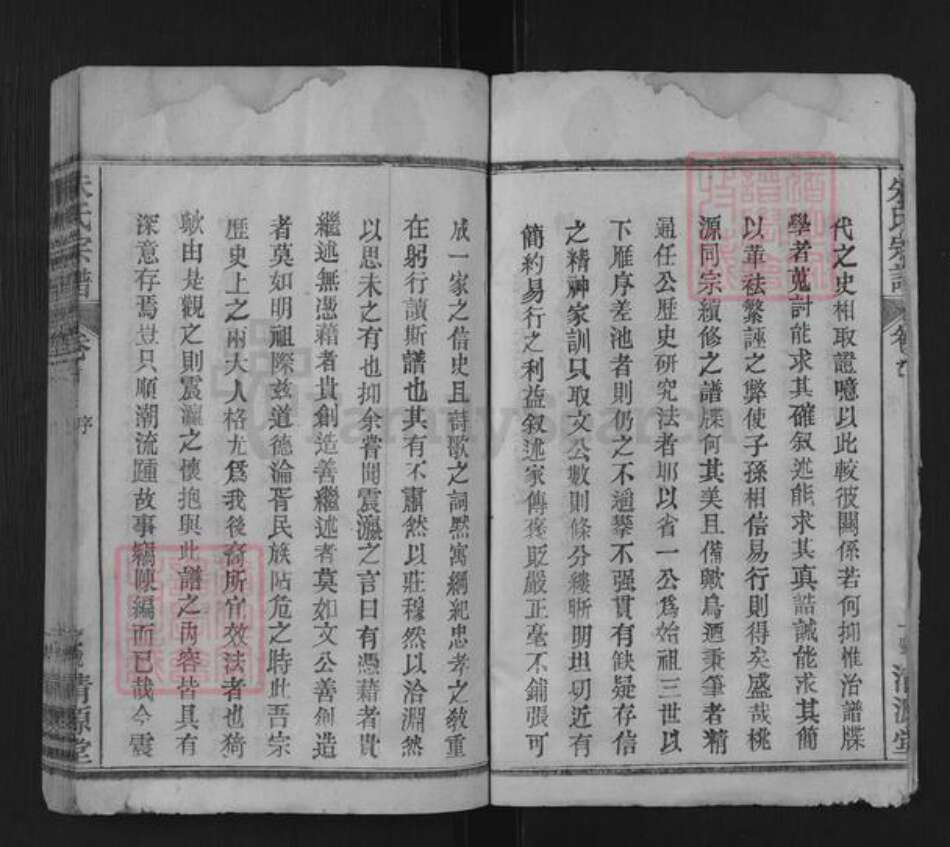 朱氏宗譜
代之史相取證噫以此較彼關係若何抑惟治譜牒
學者蒐討能求其確叙述能求其真誥誡能求其簡
以革祛繁誣之弊使子孫相信易行則得矣盛哉桃
源同宗續修之譜牒何其美且備歟烏遡秉筆者精
通任公歷史研究法者耶以省一公爲始祖三世以
下雁序差池者則仍之不通攀不强貫有缺疑存信
之精神家訓只取文公數則條分縷晰明坦切近有
簡約易行之利益叙述家傳褒貶嚴正毫不鋪張可
成一家之信史且詩歌之詞黙寓綱紀忠孝之敎重
在躬行讀斯譜也其有不肅然以莊穆然以洽淵然
以思未之有也抑余嘗聞震瀛之言曰有憑藉者貴
繼述無憑藉者貴創造善繼述者莫如文公善創造
者莫如明祖際兹道德淪胥民族阽危之時此吾宗
歷史上之兩大人格尤爲我後裔所宜效法者也猗
歟由是觀之則震瀛之懷抱與此譜之內容皆具有
深意存焉豈只順潮流踵故事竊陳編而已哉今震
朱氏宗譜
序
清源堂
FamilySearch